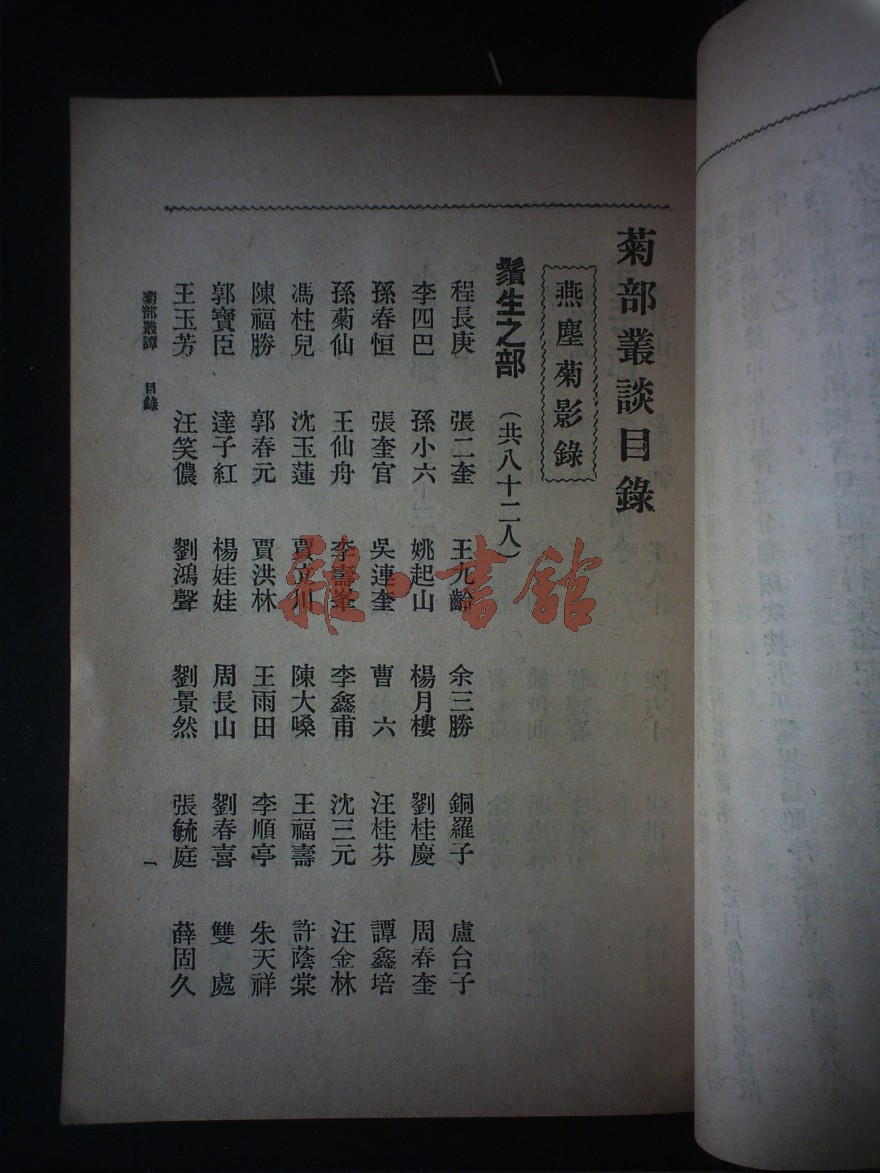 菊部叢談目錄
燕塵菊影錄
鬚生之部(共八十二人)
程長庚 張二奎 王九齡 余三勝 銅羅子 盧台子
李四巴 孫小六 姚起山 楊月樓 劉桂慶 周春奎
孫春恒 張奎官 吳連奎 曹六 汪桂芬 譚鑫培
孫菊仙 王仙舟 李壽峯 李鑫甫 沈三元 汪金林
馮柱兒 沈玉蓮 賈文川 陳大嗓 王福壽 許蔭棠
陳福勝 郭春元 賈洪林 王雨田 李順亭 朱天祥
郭寶臣 達子紅 楊娃娃 周長山 劉春喜 雙處
王玉芳 汪笑儂 劉鴻聲 劉景然 張毓庭 薛固久
菊部叢譚 目錄 一
雜·書館